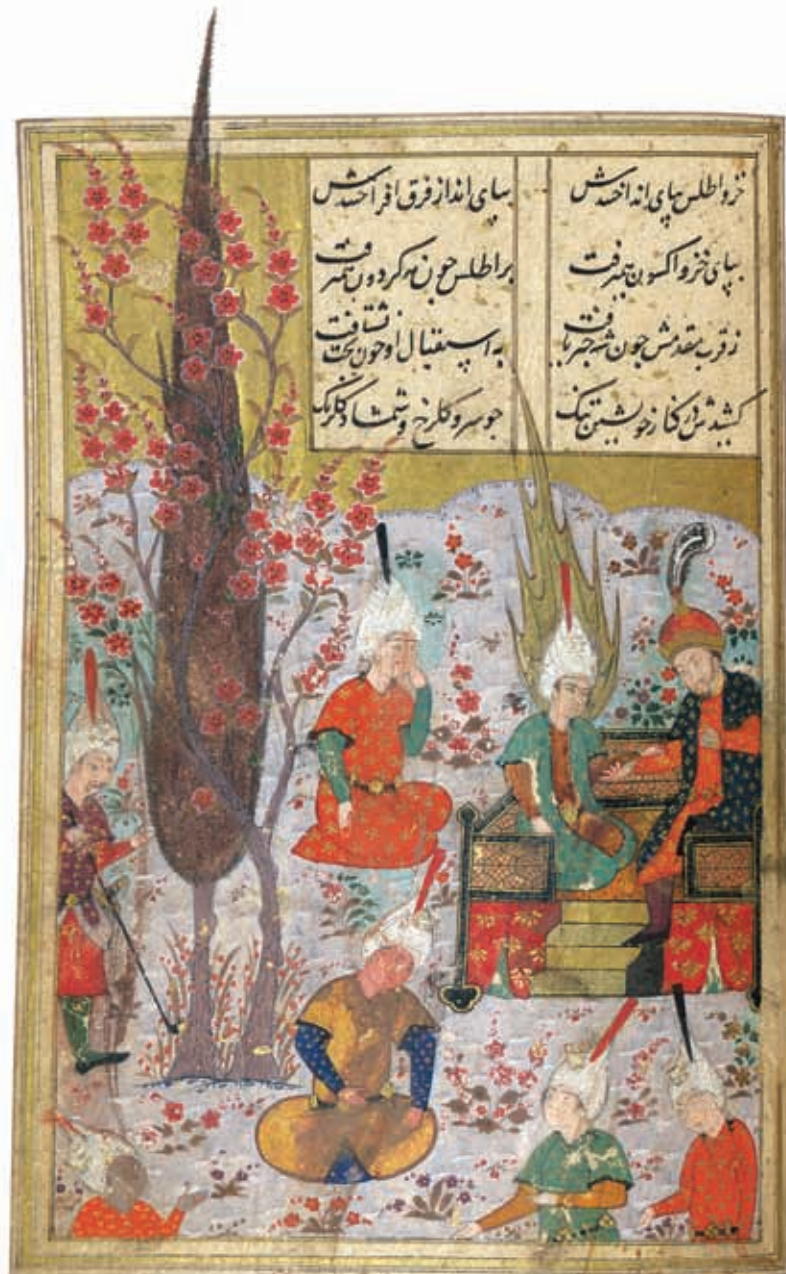 خز و اطلس بپای انداختندش بپای انداز فرق افراختندش
بپای خز و اکسون همیرفت بر اطلس جون مه کردون همیرفت
ز قرب مقدمش جون شه خبر یافت به استقبال او جون بخت بشتافت
کشیدش در کنار خویشتن تنک جو سرو کلرخ و شمشاد کلرنک